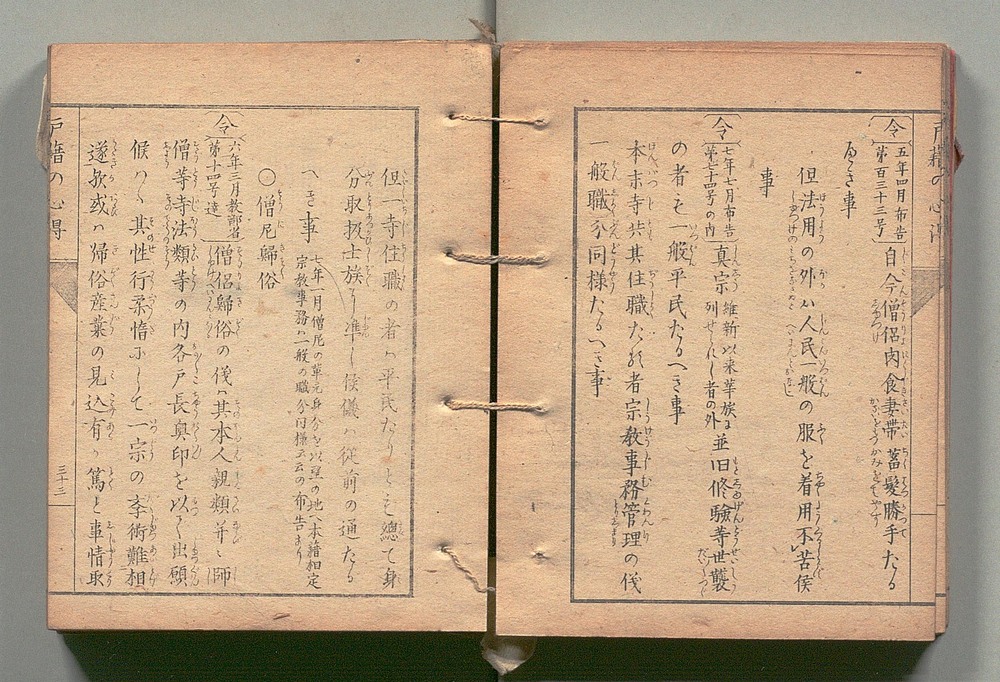 令
五年四月布告
第百三十三号
自今僧侶肉食妻帯蓄髪勝手たる
べき事
但法用の外ハ人民一般の服を着用不苦候
事
令
七年七月布告
第七十四号の内
真宗
維新以来華族ニ
列せられし者の外
並旧修験等世襲
の者も一般平民たるへき事
本末寺共其住職たる者宗教事務管理の儀
一般職分同様たるへき事
但一寺住職の者ハ平民たりとも總て身
分取扱士族ニ準し候儀ハ従前の通たる
へき事
七年一月僧尼の
身分を以
の地へ本籍相定
宗教事務ハ一般の職分同様云云の布告あり
○僧尼歸俗
令
六年三月教部省
第十四号達
僧侶歸俗の儀ハ其本人親類并ニ師
僧等寺法類等の内各戸長奥印を以て出願
候ハゝ其性行柔惰ニして一宗の
術難相
遂欤或ハ帰俗産業の見込有ハ篤と事情取
戸籍の心得
三十三